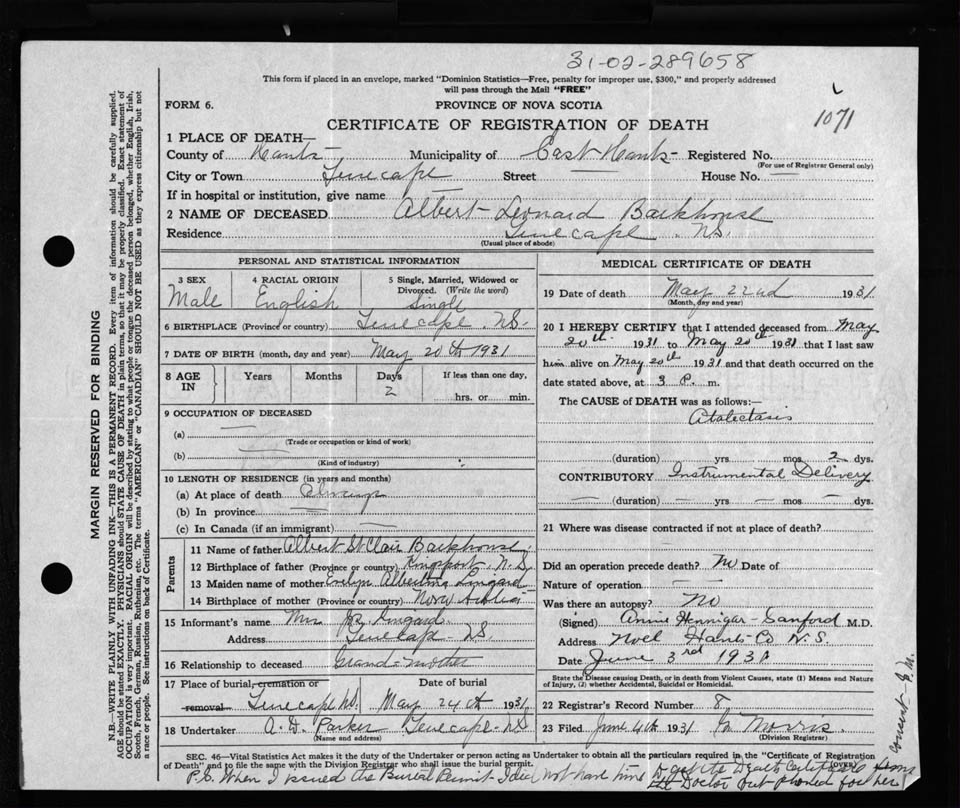 31-02-289658
This form if placed in an envelope, marked "Dominion Statistics—Free, penalty for improper use, $300," and properly addressed
will pass through the Mail "FREE"
FORM 6.
PROVINCE OF NOVA SCOTIA
1071
CERTIFICATE OF REGISTRATION OF DEATH
1 PLACE OF DEATH—
County of Hants Municipality of East Hants Registered No.
(For use of Registrar General only)
City or Town Tenecape Street House No.
If in hospital or institution, give name
2 NAME OF DECEASED Albert Leonard Backhouse
Residence Tenecape N.S.
(Usual place of abode)
PERSONAL AND STATISTICAL INFORMATION
3 SEX 4 RACIAL ORIGIN 5 Single, Married, Widowed or
Divorced. (Write the word)
Male English Single
6 BIRTHPLACE (Province or country) Tenecape N.S.
7 DATE OF BIRTH (month, day and year) May 20th 1931
8 AGE IN Years Months Days If less than one day,
2 hrs. or min.
9 OCCUPATION OF DECEASED
(a)
(Trade or occupation or kind of work)
(b)
(Kind of industry)
10 LENGTH OF RESIDENCE (in years and months)
(a) At place of death Always
(b) In province
(c) In Canada (if an immigrant)
Parents
11 Name of father Albert St Clair Backhouse
12 Birthplace of father (Province or country) Kingsport N.S.
13 Maiden name of mother Evelyn Albertina Lingard
14 Birthplace of mother (Province or country) Nova Scotia
15 Informant's name Mrs Lingard
Address Tenecape N.S.
16 Relationship to deceased Grand-mother
17 Place of burial, cremation or removal Date of burial
Tenecape N.S. May 24th 1931
18 Undertaker A. D. Parker Tenecape N.S.
(Name and address)
MEDICAL CERTIFICATE OF DEATH
19 Date of death May 22nd 1931
(Month, day and year)
20 I HEREBY CERTIFY that I attended deceased from May
20th 1931 to May 20th 1931 that I last saw
him alive on May 20th 1931 and that death occurred on the
date stated above, at 3 P. m.
The CAUSE of DEATH was as follows:—
Atalectasis
(duration) yrs. mos. 2 dys.
CONTRIBUTORY Instrumental Delivery
(duration) yrs. mos. dys.
21 Where was disease contracted if not at place of death?
Did an operation precede death? No Date of
Nature of operation
Was there an autopsy? No
(Signed) Annie Hennigar-Sanford M.D.
Address Noel Hants Co N.S.
Date June 3rd 1931
State the Disease causing Death, or in death from Violent Causes, state (1) Means and Nature
of Injury, (2) whether Accidental, Suicidal or Homicidal.
22 Registrar's Record Number 8
23 Filed June 4th 1931 Morris
(Division Registrar)
SEC. 46—Vital Statistics Act makes it the duty of the Undertaker or person acting as Undertaker to obtain all the particulars required in the "Certificate of Registration
of Death" and to file the same with the Division Registrar who shall issue the burial permit.
(OVER)
P.S. When I issued the Burial Permit I did not have time to get the Death Certificate from
the Doctor but phoned for her
consent G.M.
MARGIN RESERVED FOR BINDING
N.B.—WRITE PLAINLY WITH UNFADING INK—THIS IS A PERMANENT RECORD. Every item of information should be carefully supplied.
AGE should be stated EXACTLY. PHYSICIANS should STATE CAUSE OF DEATH in plain terms, so that it may be properly classified. Exact statement of
OCCUPATION is very important. RACIAL ORIGIN will be described by stating to what people or tongue the deceased person belonged, whether English, Irish,
Scotch, French, German, Russian, Ruthenian, etc. The terms "AMERICAN" or "CANADIAN" SHOULD NOT BE USED as they express citizenship but not
a race or people. See instructions on back of Certificate.